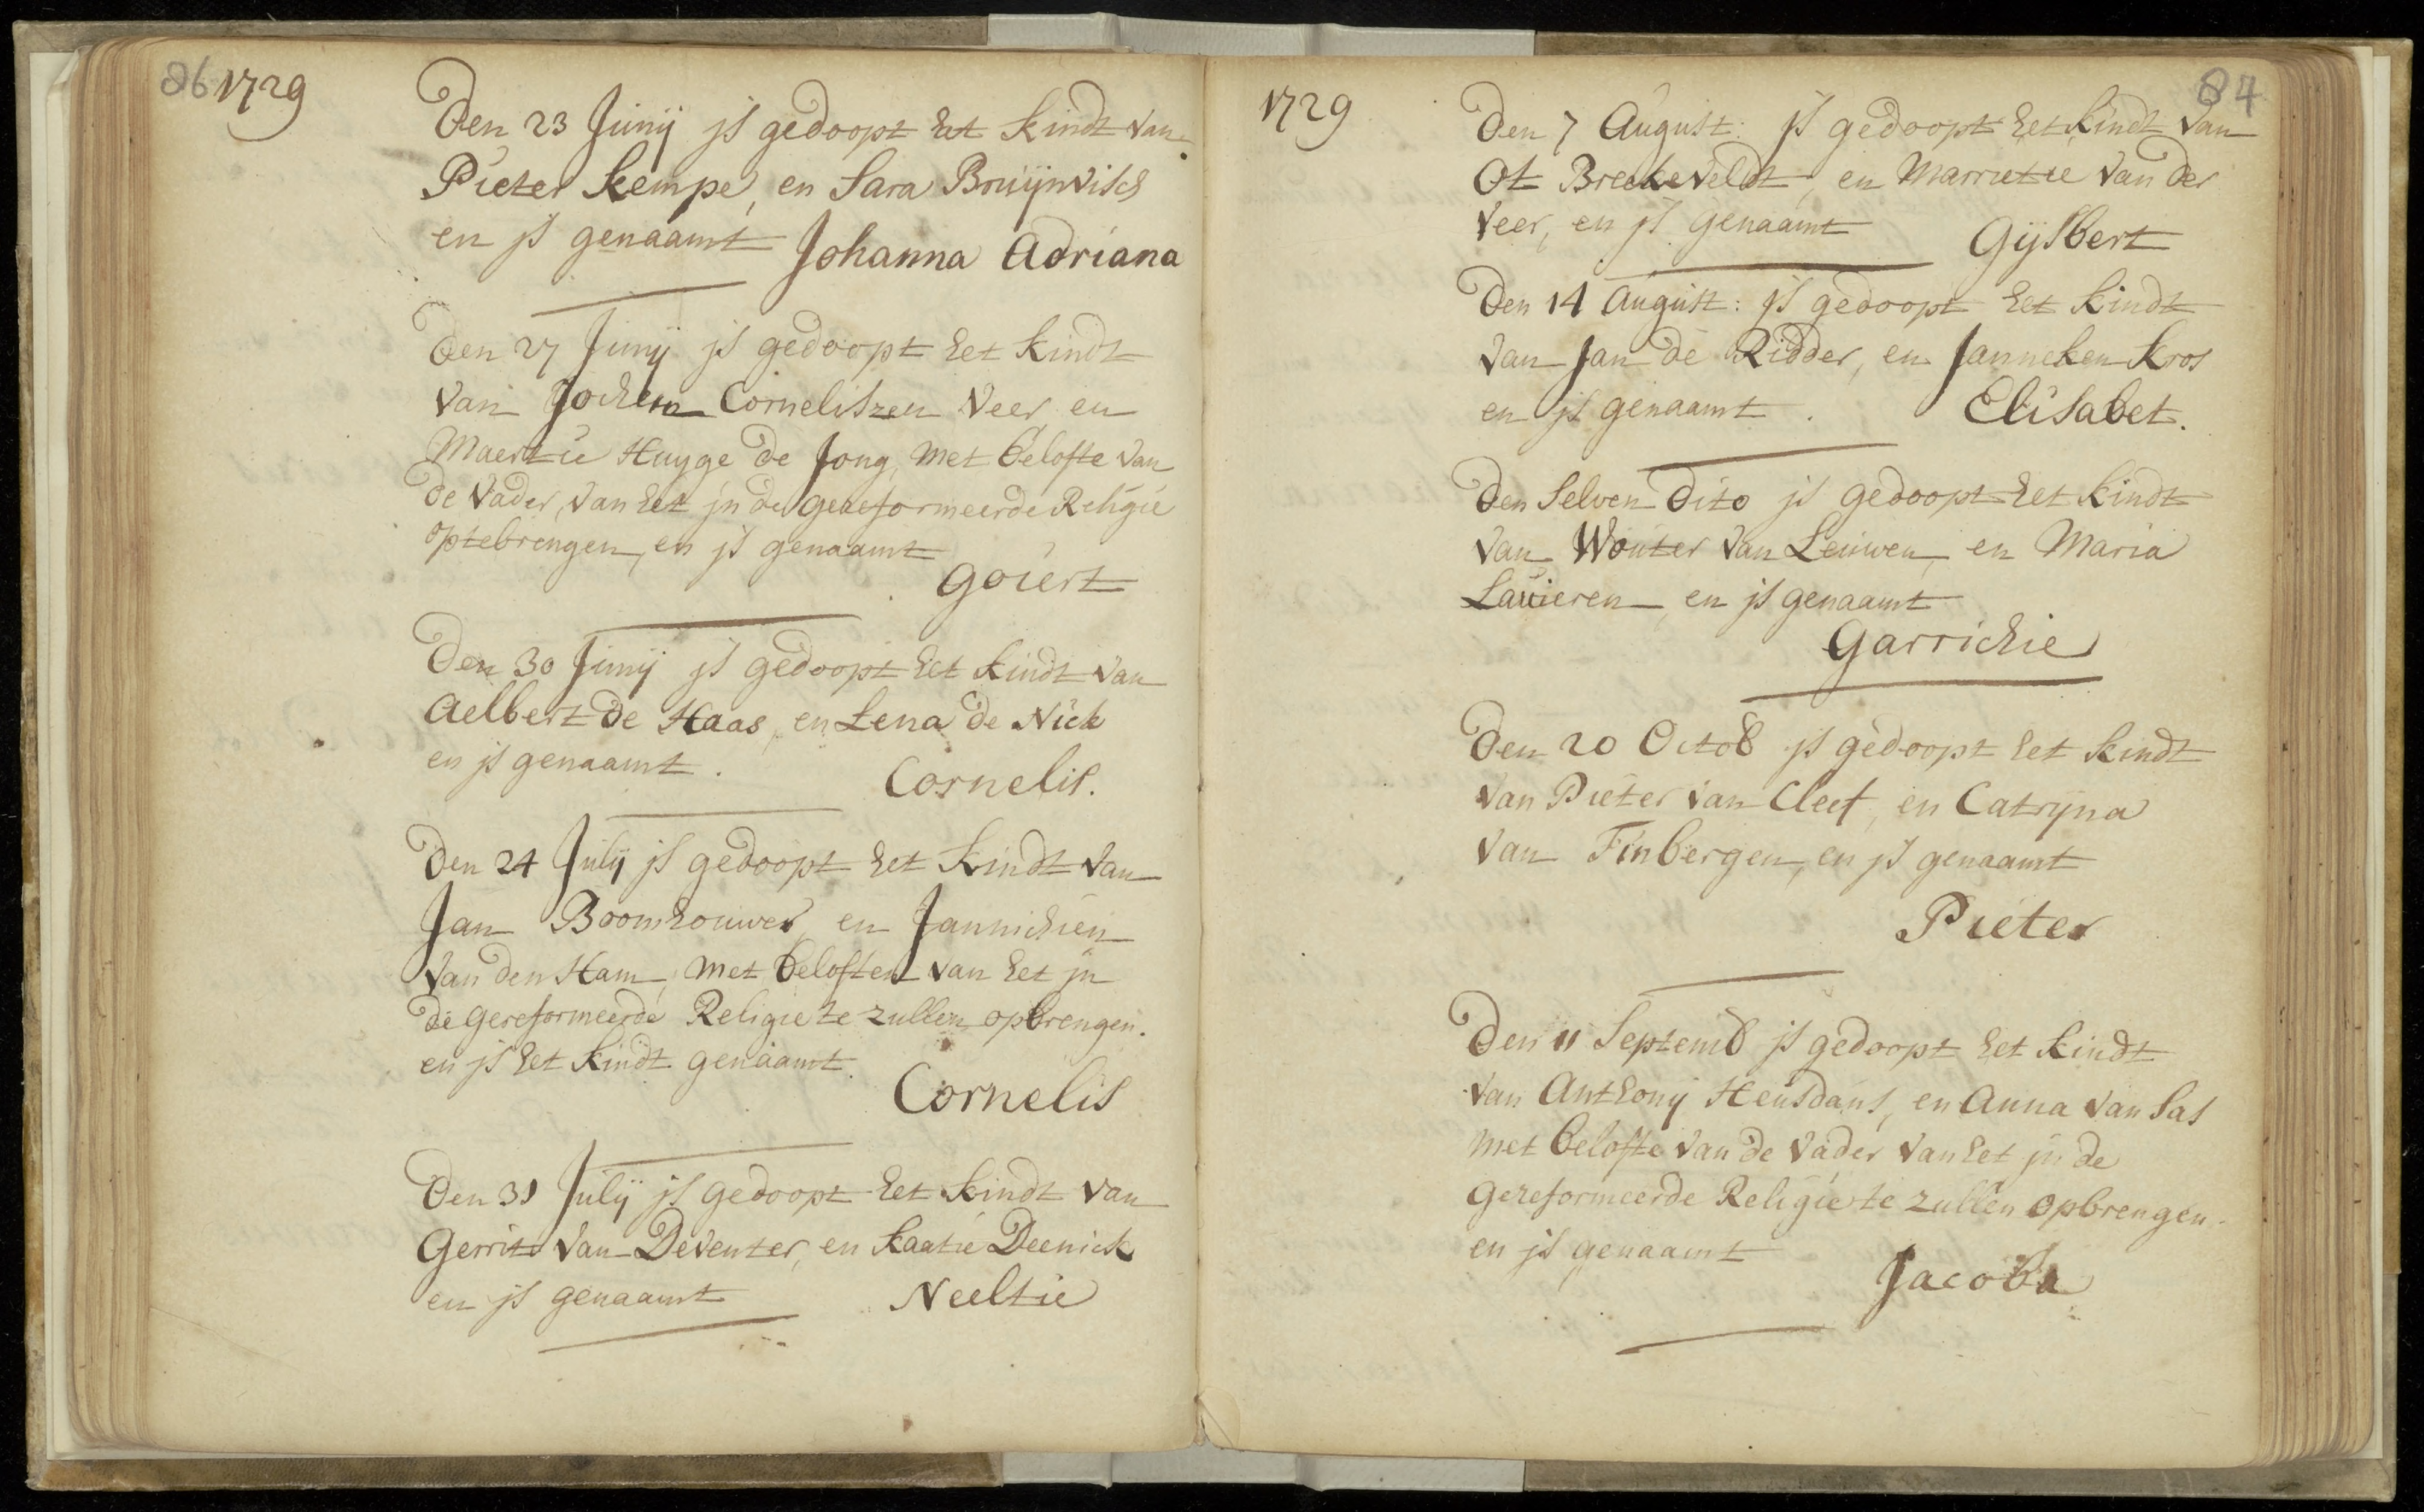 86 1729
Den 23 Junij js gedoopt het kindt van
Pieter Kempe, en Sara Bruijnvisch
en js genaamt Johanna Adriana
Den 27 Junij js gedoopt het kindt
van Jochem Corneliszen Veer, en
Maertie Huyge de Jong, met belofte van
de Vader, van het jn de gereformeerde Religie
optebrengen, en js genaamt
Goiert
Den 30 Junij js gedoopt het kindt van
Aelbert de Haas, en Lena de Nick
en js genaamt. Cornelis.
Den 24 Julij js gedoopt het kindt van
Jan Boomhouwer, en Jannichien
van den Ham, met beloften van het jn
de gereformeerde Religie te zullen opbrengen.
en js het kindt genaamt.
Cornelis
Den 31 Julij js gedoopt het kindt van
Gerrit van Deventer, en Kaatie Deenick
en js genaamt Neeltie
1729
87
Den 7 August: js gedoopt het kindt van
Ot Breckeveldt, en Marrietie van der
Veer, en js genaamt Gijsbert
Den 14 August: js gedoopt het kindt
van Jan de Ridder, en Janneken Kros
en js genaamt. Elisabet.
Den selven dito js gedoopt het kindt
van Wouter van Leuwen, en Maria
Lauieren, en js genaamt
Garrichie
Den 20 Octob js gedoopt het kindt
van Pieter van Cleef, en Catryna
van Finbergen, en js genaamt
Pieter
Den 11 Septemb js gedoopt het kindt
van Anthony Heusdans, en Anna van Sas
met belofte van de Vader van het jn de
gereformeerde Religie te zullen opbrengen.
en js genaamt
Jacoba